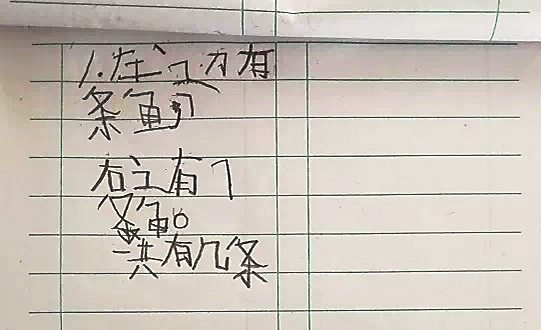 1.左边有
条鱼,
右辶有7
条鱼。
一共有几条